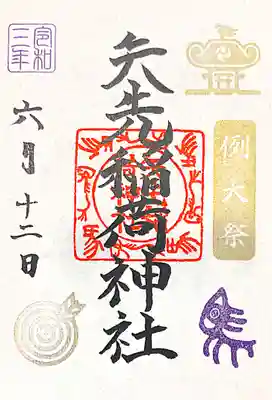 例大祭
矢先稲荷神社
令和三年
六月十二日